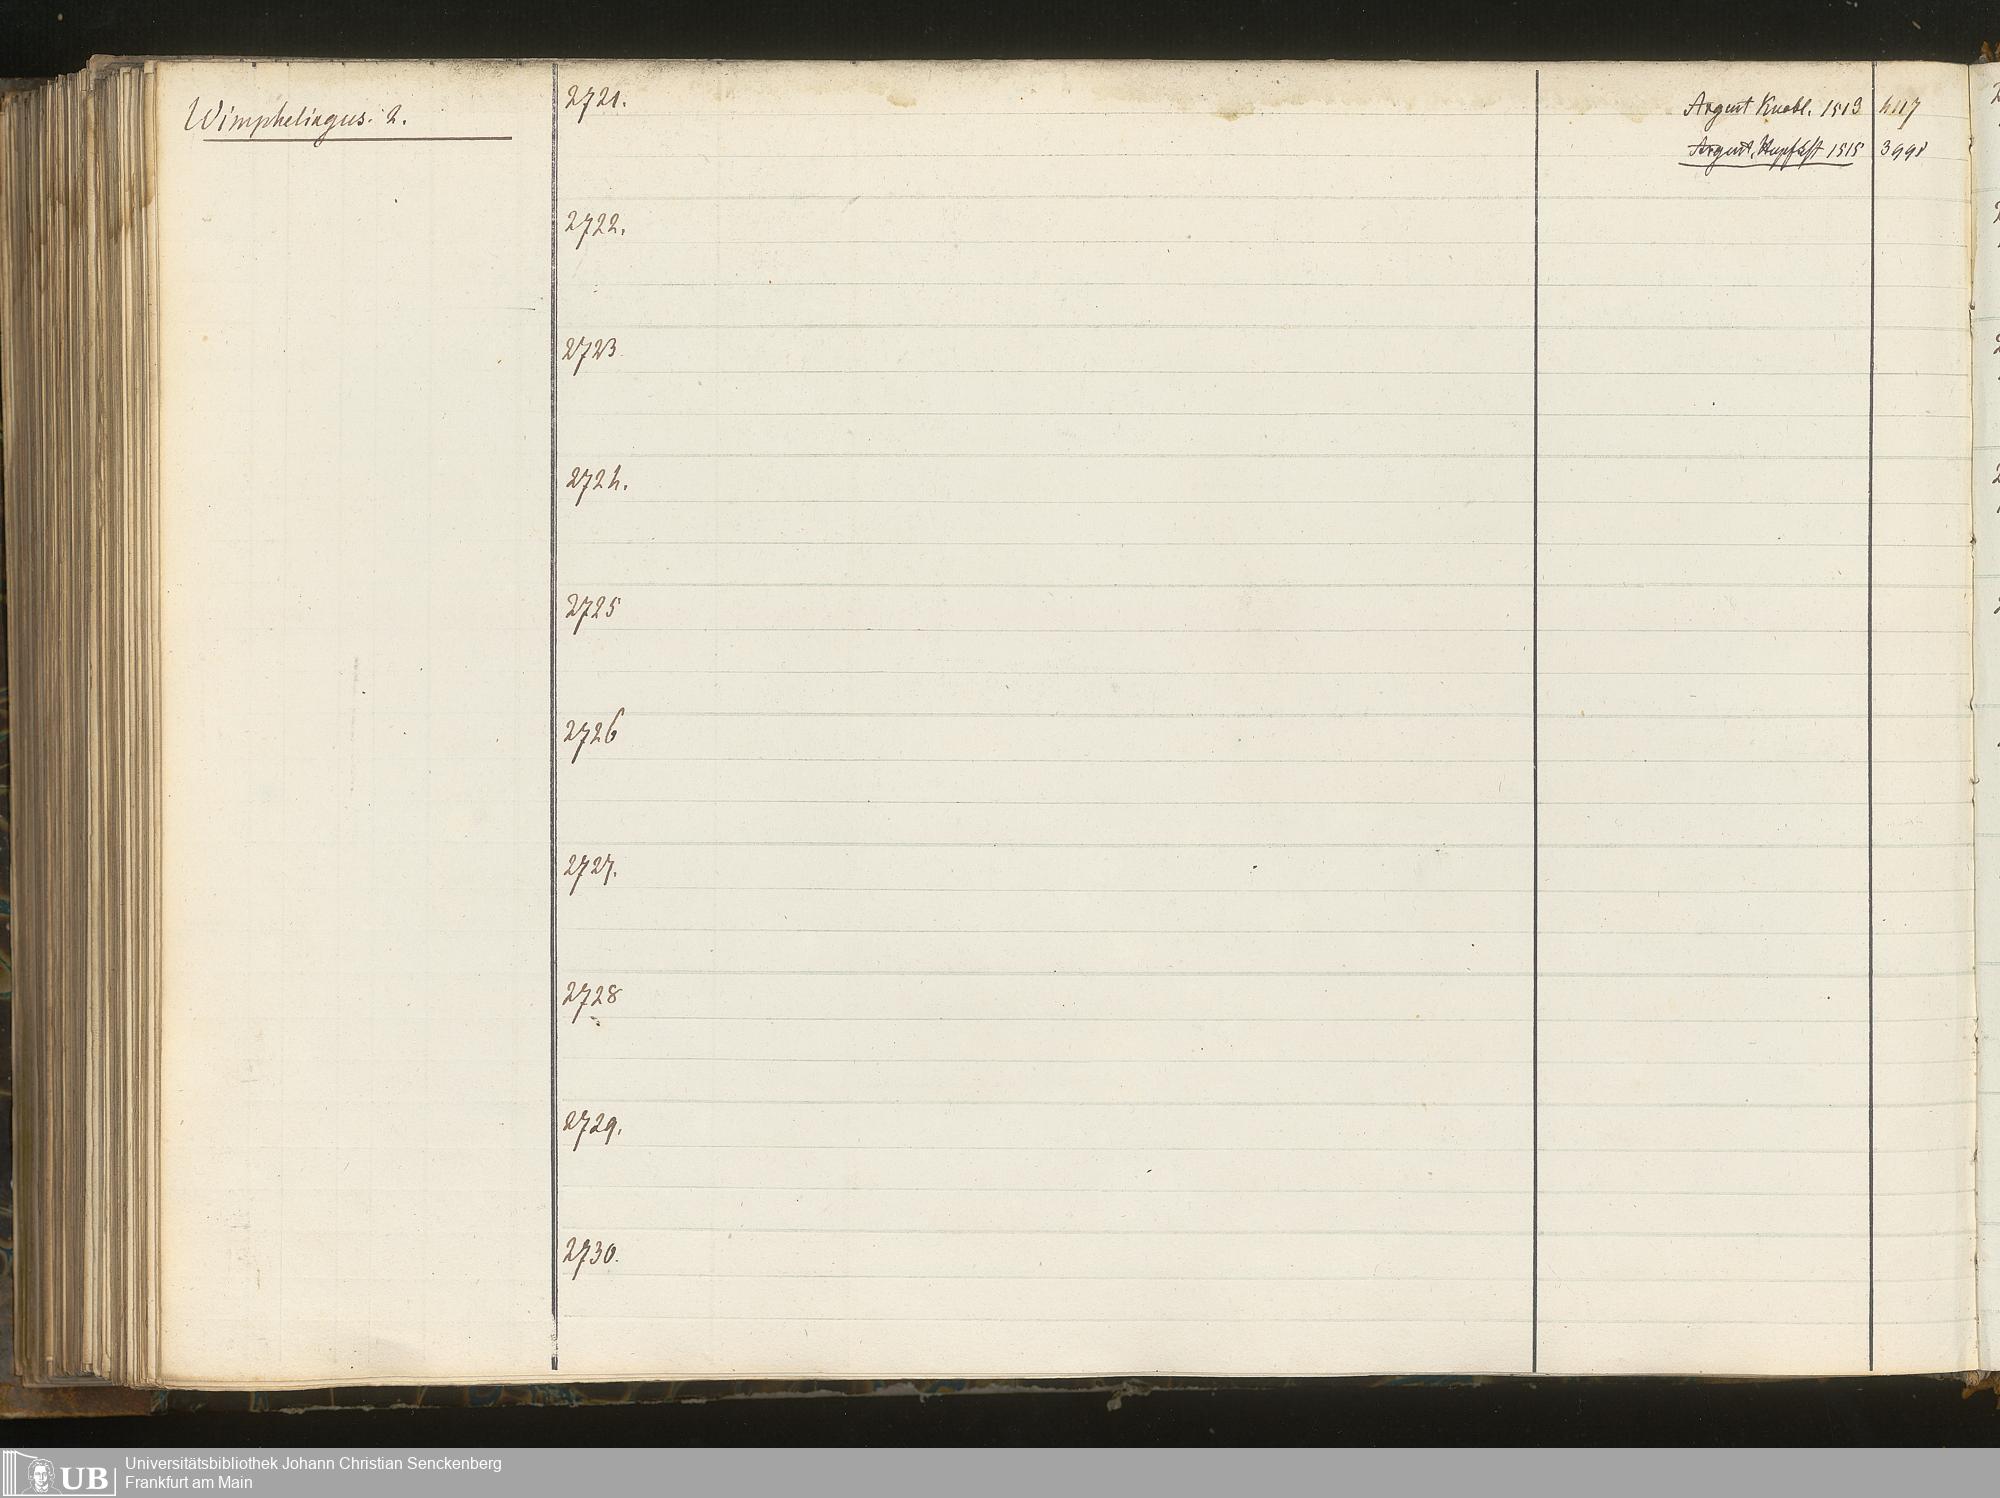 Wimphelingus. 2.
2721.
Argent Knobl. 1513 4117
Argent. Hupfuff 1515 3998
2722.
2723
2724.
2725
2726
2727.
2728
2729.
2730.
UB
Universitätsbibliothek Johann Christian Senckenberg
Frankfurt am Main